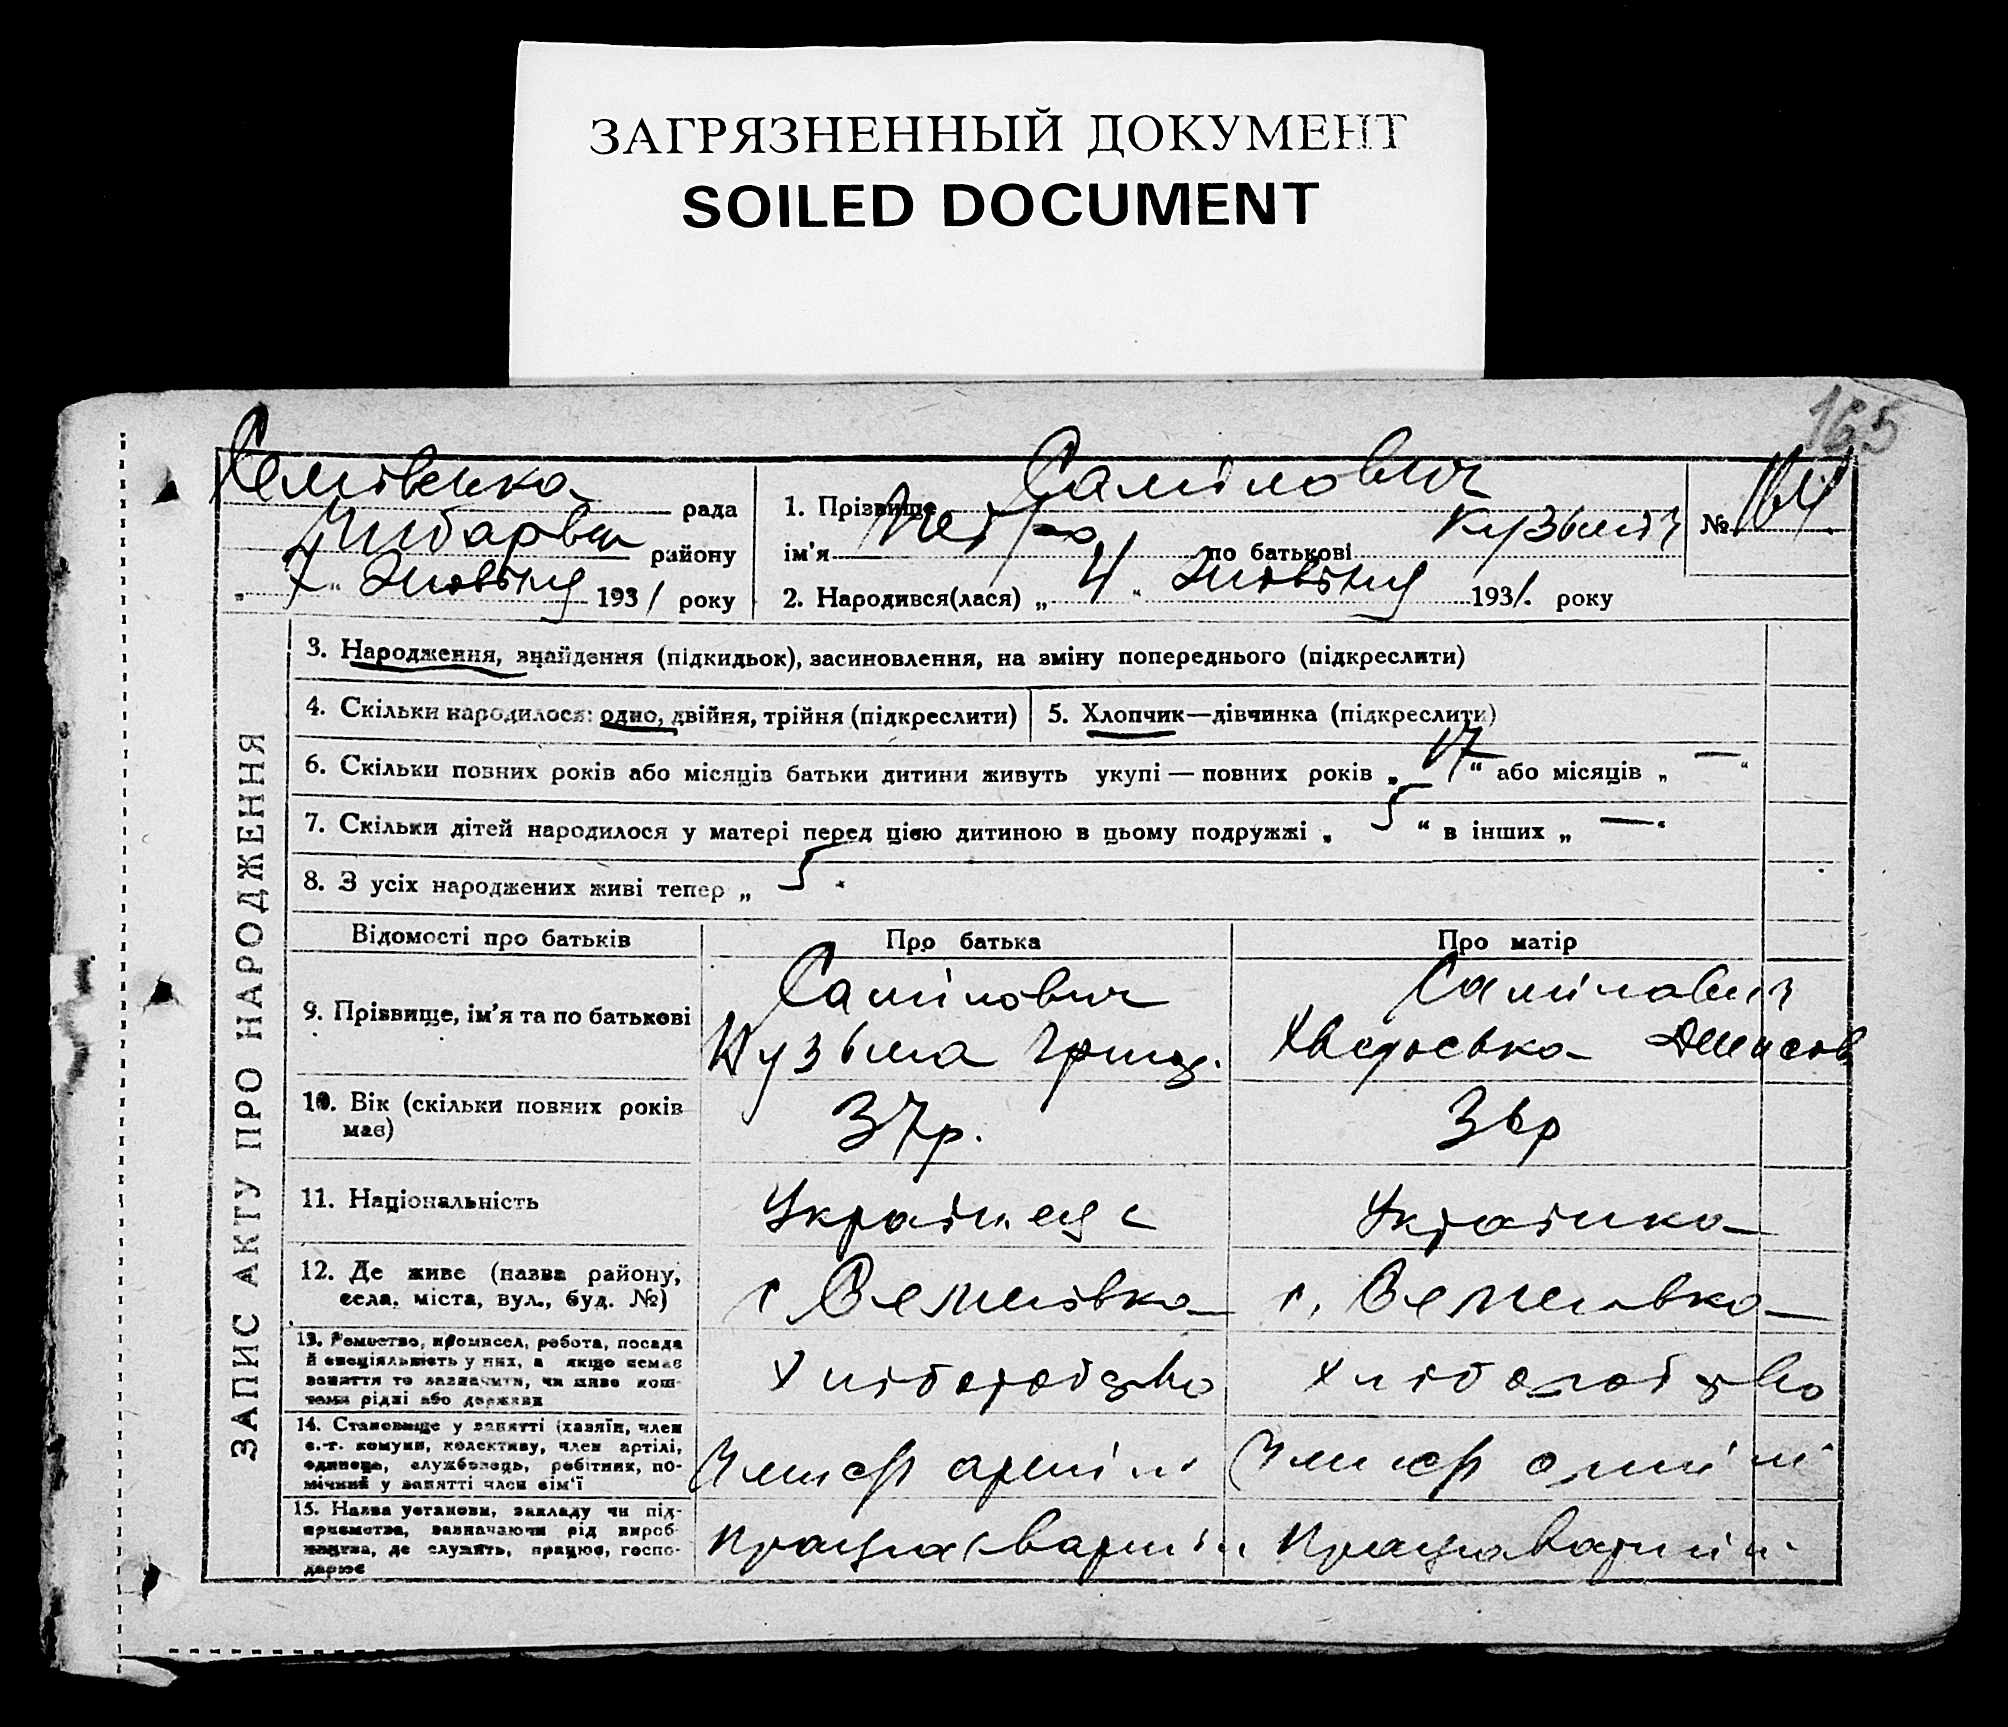 ЗАГРЯЗНЕННЫЙ ДОКУМЕНТ
SOILED DOCUMENT
165
рада
району
„ 7 “ Жовтня 1931 року
1. Прізвище Самілович
ім'я Петро по батькові Кузьміч
2. Народився(лася) „ 4 “ Жовтня 1931. року
№ 164
ЗАПИС АКТУ ПРО НАРОДЖЕННЯ
3. Народження, знайдення (підкидьок), засиновлення, на зміну попереднього (підкреслити)
4. Скільки народилося: одно, двійня, трійня (підкреслити)
5. Хлопчик—дівчинка (підкреслити)
6. Скільки повних років або місяців батьки дитини живуть укупі — повних років „ 17 “ або місяців „ — “
7. Скільки дітей народилося у матері перед цією дитиною в цьому подружжі „ 5 “ в інших „ — “
8. З усіх народжених живі тепер „ 5 “
Відомості про батьків
Про батька
Про матір
9. Прізвище, ім'я та по батькові
Самілович
Кузьма Гриц.
Самілович
Хведоська Денисов
10. Вік (скільки повних років
має)
37р.
36р
11. Національність
Українець
Українка
12. Де живе (назва району,
села, міста, вул., буд. №)
с Семенівка
с. Семенівка
13. Ремество, промисел, робота, посада
й спеціяльність у них, а якщо немає
заняття то зазначити, чи живе кош-
тами рідні або держави
Хліборобство
Хліборобство
14. Становище у занятті (хазяїн, член
с.-г. комуни, колективу, член артілі,
одинець, службовець, робітник, по-
мічний у занятті член сім'ї
Член артілі
Член артілі
15. Назва установи, закладу чи під-
приємства, зазначаючи рід вироб-
ництва, де служить, працює, госпо-
дарює
Працює в артілі
Працює в артілі